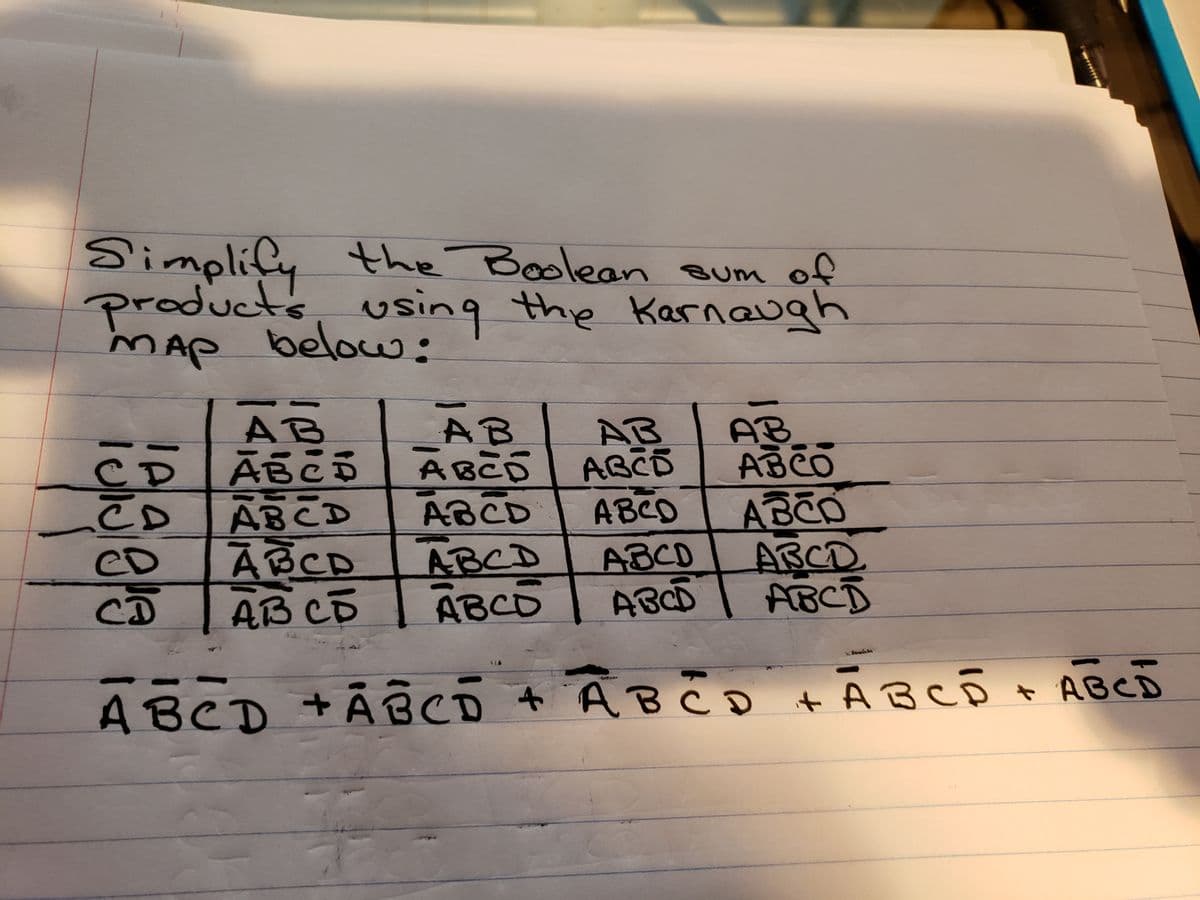 Simplify the Boolean sum of
products using the Karnaugh
MAP below:
A̅B̅ A̅B AB AB̅
C̅D̅ A̅B̅C̅D̅ A̅BC̅D̅ ABC̅D̅ AB̅C̅D̅
C̅D A̅B̅C̅D A̅BC̅D ABC̅D AB̅C̅D
CD A̅B̅CD A̅BCD ABCD AB̅CD
CD̅ A̅B̅CD̅ A̅BCD̅ ABCD̅ AB̅CD̅
A̅B̅C̅D + A̅B̅CD̅ + A̅BC̅D + A̅BCD̅ + AB̅CD̅